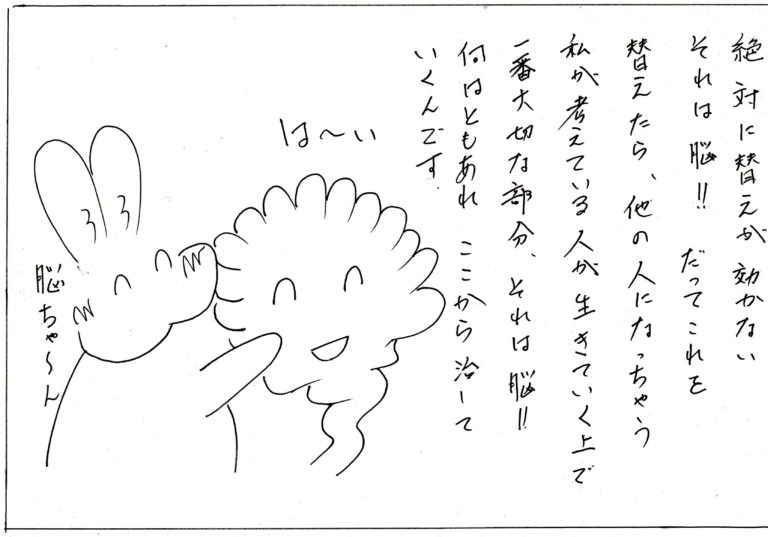 絶対に替えが効かない
それは脳!! だってこれを
替えたら、他の人になっちゃう
私が考えている人が生きていく上で
一番大切な部分、それは脳!!
何はともあれ ここから治して
いくんです.
は〜い
脳ちゃ〜ん